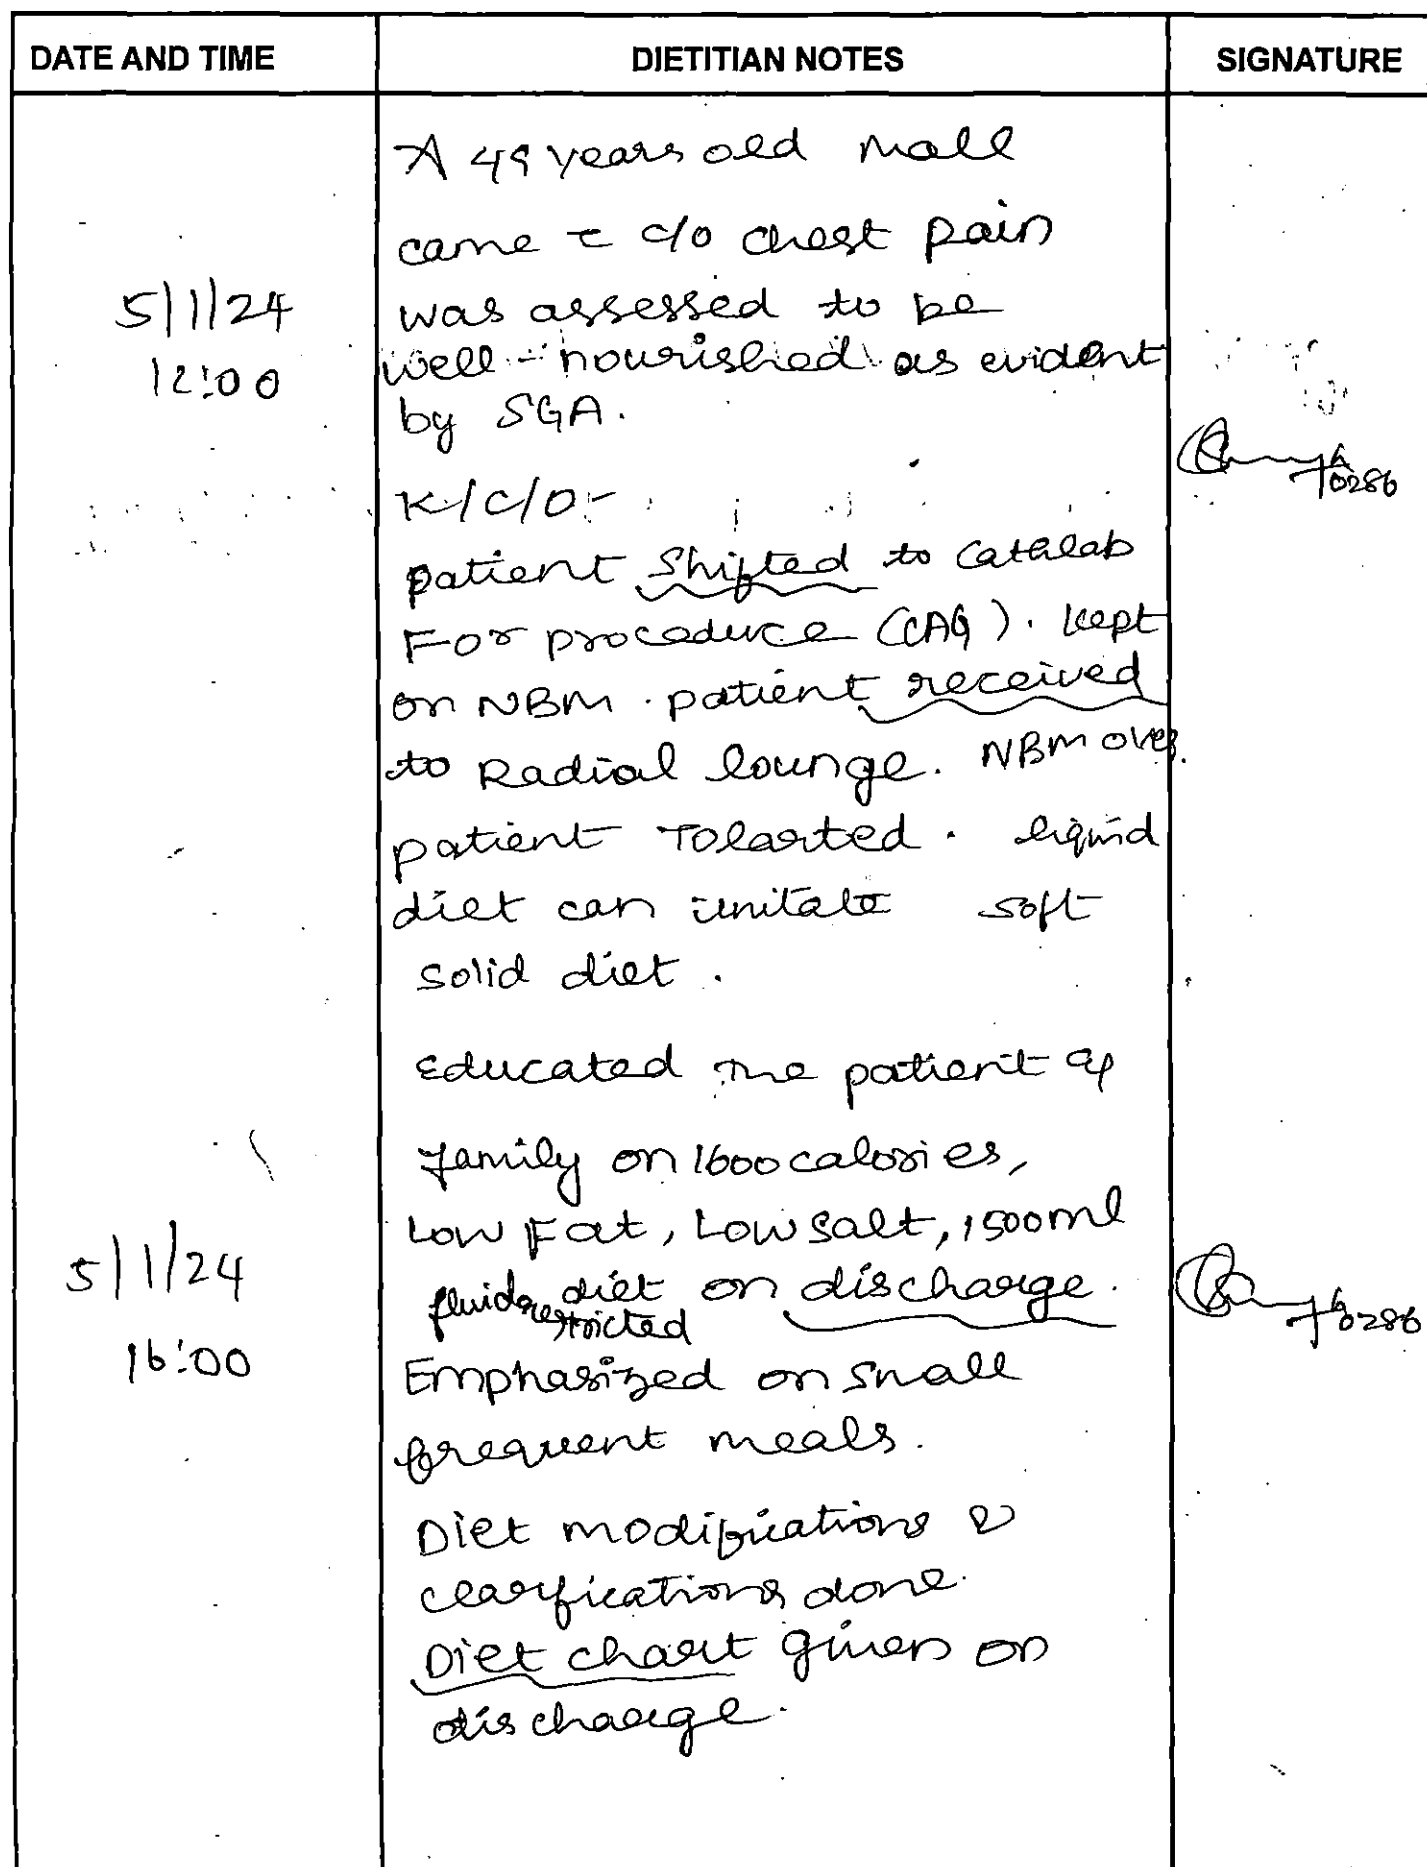 DATE AND TIME DIETITIAN NOTES SIGNATURE
A 49 years old male
came c̄ c/o chest pain
5/1/24 was assessed to be
12:00 well-nourished as evident
by SGA.
K/C/O-
patient shifted to cathlab
For procedure (CAG). kept
on NBM. patient received
to Radial lounge. NBM over.
patient Tolarted. liquid
diet can initate soft
solid diet.
Educated the patient &
family on 1600 calories,
Low Fat, Low salt, 1500ml
5/1/24 fluid restricted diet on discharge.
16:00 Emphasized on small
frequent meals.
Diet modifications &
clarfications done.
Diet chart given on
discharge.